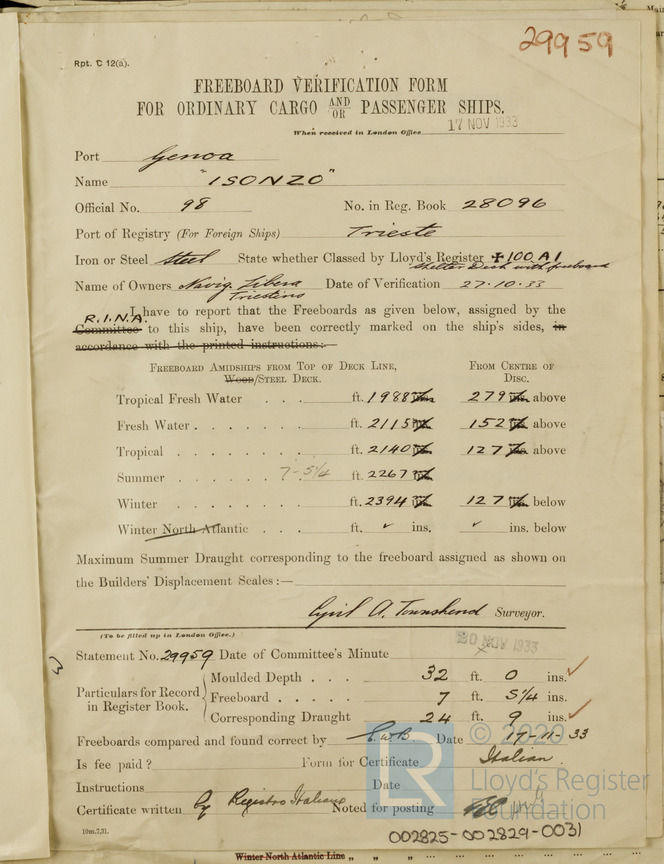 29959
Rpt. C 12(a).
FREEBOARD VERIFICATION FORM
FOR ORDINARY CARGO AND/OR PASSENGER SHIPS.
When received in London Office 17 NOV 1933
Port Genoa
Name "ISONZO"
Official No. 98 No. in Reg. Book 28096
Port of Registry (For Foreign Ships) Trieste
Iron or Steel Steel State whether Classed by Lloyd's Register ✠100 A1
Shelter Deck with freeboard
Name of Owners Navig. Libera Date of Verification 27.10.33
Triestina
I have to report that the Freeboards as given below, assigned by the
R.I.N.A.
Committee to this ship, have been correctly marked on the ship's sides, in
accordance with the printed instructions:—
FREEBOARD AMIDSHIPS FROM TOP OF DECK LINE, FROM CENTRE OF
WOOD/STEEL DECK. DISC.
Tropical Fresh Water . . . ft. 1988 279 above
Fresh Water . . . . . . . . ft. 2115 152 above
Tropical . . . . . . . . ft. 2140 127 above
Summer . . . . . . 7-5¼ ft. 2267
Winter . . . . . . . . ft. 2394 127 below
Winter North Atlantic . . . ft. ✓ ins. ✓ ins. below
Maximum Summer Draught corresponding to the freeboard assigned as shown on
the Builders' Displacement Scales :—
Cyril A. Townshend Surveyor.
(To be filled up in London Office.) 30 NOV 1933
Statement No. 29959 Date of Committee's Minute
Particulars for Record in Register Book.
Moulded Depth . . . . 32 ft. 0 ins.
Freeboard . . . . . 7 ft. 5¼ ins.
Corresponding Draught 24 ft. 9 ins.
Freeboards compared and found correct by Date 17-11-33
Is fee paid? Form for Certificate Italian.
Instructions Date
Certificate written by Registro Italiano Noted for posting
10m,7,31.
002825-002829-0031
© 2020
Lloyd's Register
Foundation
Winter North Atlantic Line